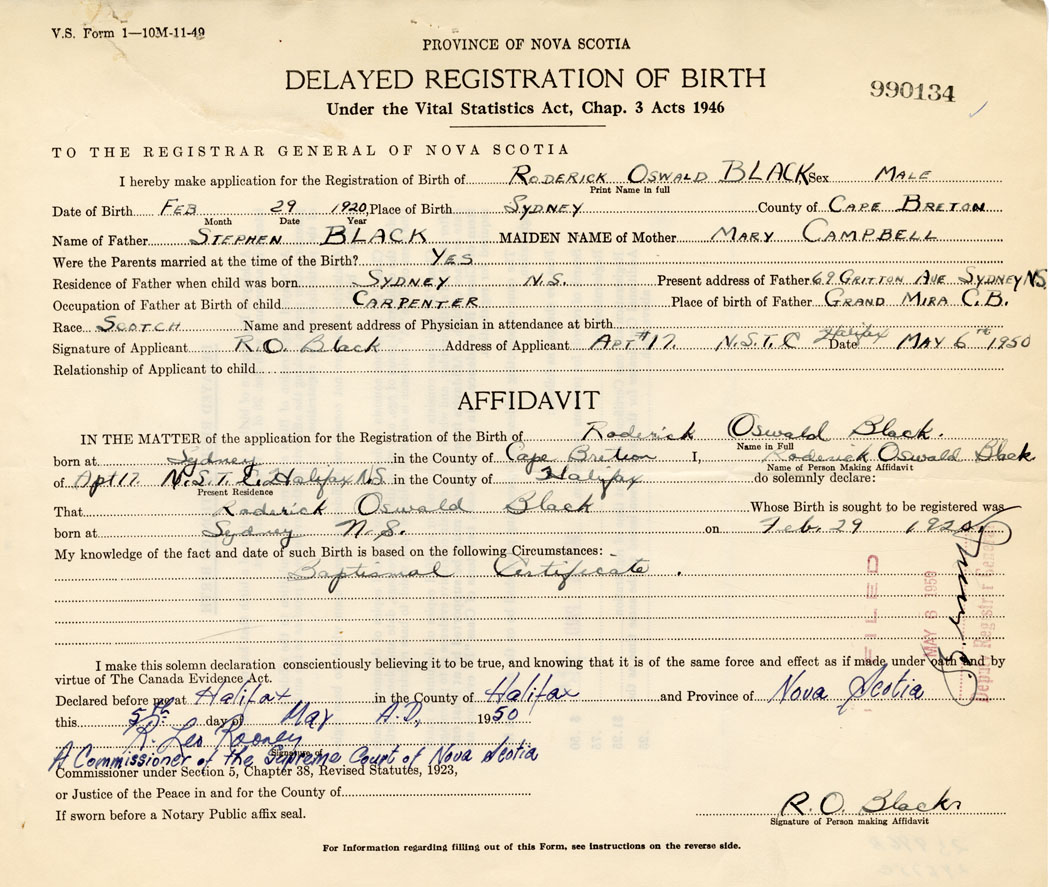 V.S. Form 1—10M-11-49
PROVINCE OF NOVA SCOTIA
DELAYED REGISTRATION OF BIRTH
990134
Under the Vital Statistics Act, Chap. 3 Acts 1946
TO THE REGISTRAR GENERAL OF NOVA SCOTIA
I hereby make application for the Registration of Birth of RODERICK OSWALD BLACK Sex MALE
Print Name in full
Date of Birth FEB 29 1920, Place of Birth SYDNEY County of CAPE BRETON
Month Date Year
Name of Father STEPHEN BLACK MAIDEN NAME of Mother MARY CAMPBELL
Were the Parents married at the time of the Birth? YES
Residence of Father when child was born SYDNEY N.S. Present address of Father 69 GRITTON AVE SYDNEY NS
Occupation of Father at Birth of child CARPENTER Place of birth of Father GRAND MIRA C.B.
Race SCOTCH Name and present address of Physician in attendance at birth
Signature of Applicant R.O. Black Address of Applicant APT #17. N.S.T.C Halifax Date MAY 6TH 1950
Relationship of Applicant to child
AFFIDAVIT
IN THE MATTER of the application for the Registration of the Birth of Roderick Oswald Black.
Name in Full
born at Sydney in the County of Cape Bretion I, Roderick Oswald Black
Name of Person Making Affidavit
of Apt 17 N.S.T.C. Halifax N.S. in the County of Halifax do solemnly declare:
Present Residence
That Roderick Oswald Black Whose Birth is sought to be registered was
born at Sydney N.S. on Feb. 29 1920.
My knowledge of the fact and date of such Birth is based on the following Circumstances: -
Baptismal Certificate.
FILED
MAY 6 1950
Deputy Registrar General
I make this solemn declaration conscientiously believing it to be true, and knowing that it is of the same force and effect as if made under oath and by
virtue of The Canada Evidence Act.
Declared before me at Halifax in the County of Halifax and Province of Nova Scotia
this 5th day of May A.D. 1950
R. Leo Rooney
Signature of
A Commissioner of the Supreme Court of Nova Scotia
Commissioner under Section 5, Chapter 38, Revised Statutes, 1923,
or Justice of the Peace in and for the County of
If sworn before a Notary Public affix seal.
R.O. Black
Signature of Person making Affidavit
For Information regarding filling out of this Form, see instructions on the reverse side.